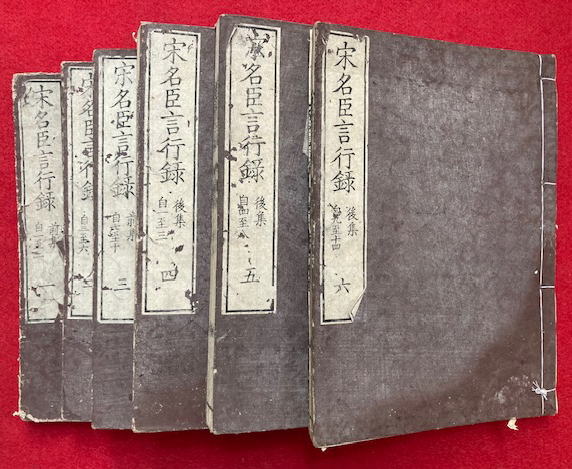 宋名臣言行録
前集
自一至二
一
宋名臣言行録
自三至六
宋名臣言行録
前集
自七至十
三
宋名臣言行録
後集
自一至三
四
宋名臣言行録
後集
自四至八
五
宋名臣言行録
後集
自九至十四
六